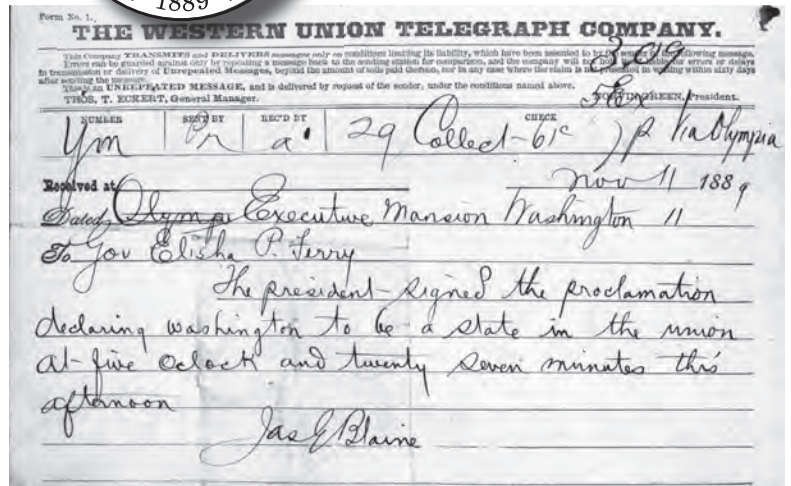 1889
Form No. 1.
THE WESTERN UNION TELEGRAPH COMPANY.
This Company TRANSMITS and DELIVERS messages only on conditions limiting its liability, which have been assented to by the sender of the following message.
Errors can be guarded against only by repeating a message back to the sending station for comparison, and the company will not hold itself liable for errors or delays
in transmission or delivery of Unrepeated Messages, beyond the amount of tolls paid thereon, nor in any case where the claim is not presented in writing within sixty days
after sending the message.
This is an UNREPEATED MESSAGE, and is delivered by request of the sender, under the conditions named above.
THOS. T. ECKERT, General Manager. NORVIN GREEN, President.
NUMBER SENT BY REC'D BY CHECK
Ym a 29 Collect-61c Via Olympia
Received at Nov 11 1889
Dated Olympi Executive Mansion Washington 11
To Gov Elisha P. Ferry
The president signed the proclamation
declaring washington to be a state in the union
at five oclock and twenty seven minutes this
afternoon
Jas G Blaine